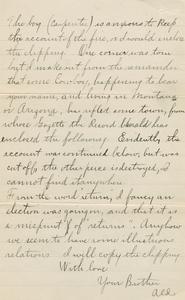 The boy (carpenter) is anxious to keep
the account of the fire, so I would inclose
the clipping. One corner was torn
but I make out from the remainder
that some Cowboy, happening to bear
your name, and lives in Montana
or Arizona, has rifled some town, from
whose Gazette the Record Herald has
enclosed the following. Evidently the
account was continued below, but was
cut off & the other piece is destroyed, I
cannot find it anywhere.
From the word return, I fancy an
election was going on, and that it is
a misprint "if returns". Anyhow
we seem to have some illustrious
relations. I will copy the clipping
With love
Your Brother